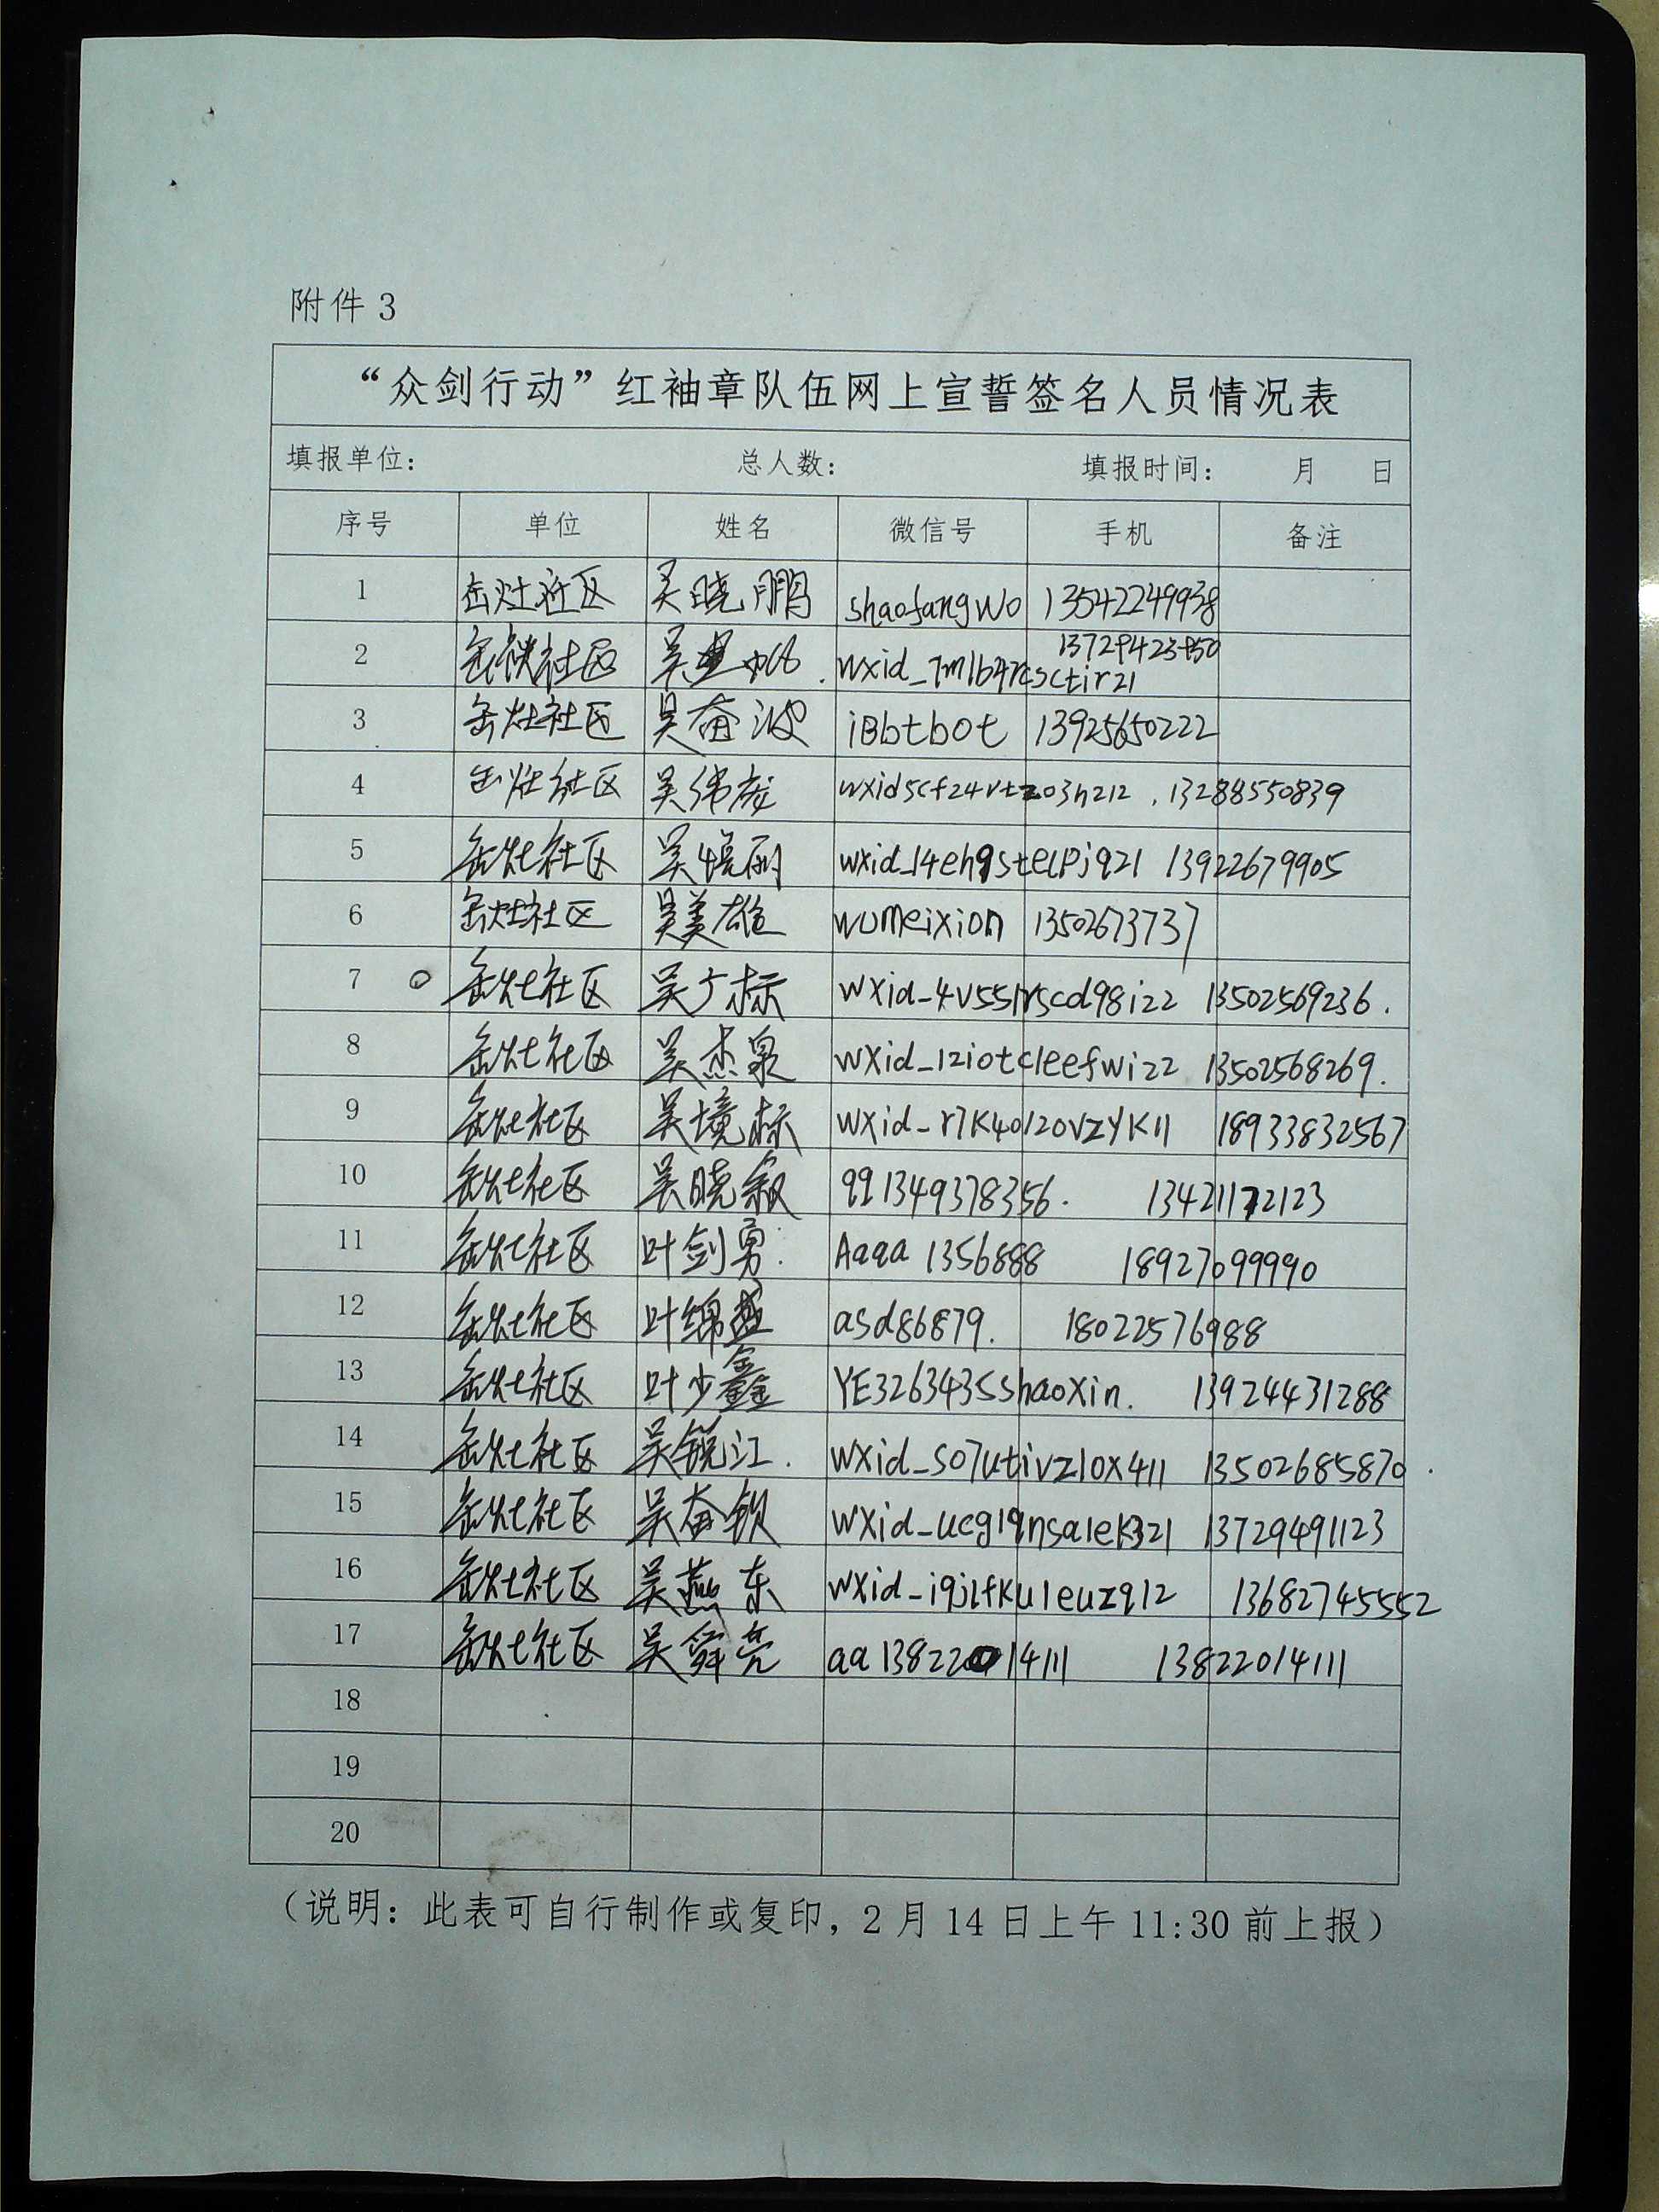 附件 3
“众剑行动”红袖章队伍网上宣誓签名人员情况表
填报单位： 总人数： 填报时间： 月 日
序号 单位 姓名 微信号 手机 备注
1 缶灶社区 吴晓鹏 shaofangwo 13542249938
2 社区 吴
3 缶灶社区 吴奋波 iBbtbot 13925650222
4 缶灶社区 吴伟宏 13288550839
5 缶灶社区 吴 13922679905
6 缶灶社区 吴美雄 wumeixion 13502673737
7 缶灶社区 吴广标 13502569236.
8 缶灶社区 吴杰泉 wxid_1ziotcleefwi22 13502568269.
9 缶灶社区 吴境标 wxid_r7k40120vzyk11 18933832567
10 缶灶社区 吴晓 qq1349378356. 13421172123
11 缶灶社区 叶剑勇 Aaaa1356888 18927099990
12 缶灶社区 叶绵 asd86879. 18022576988
13 缶灶社区 叶少鑫 13924431288
14 缶灶社区 吴锐江. wxid_so7utivz10x411 13502685870.
15 缶灶社区 吴奋钦 13729491123
16 缶灶社区 吴燕东 13682745552
17 缶灶社区 吴舜亮 aa13822014111 13822014111
18
19
20
（说明：此表可自行制作或复印，2 月 14 日上午 11:30 前上报）